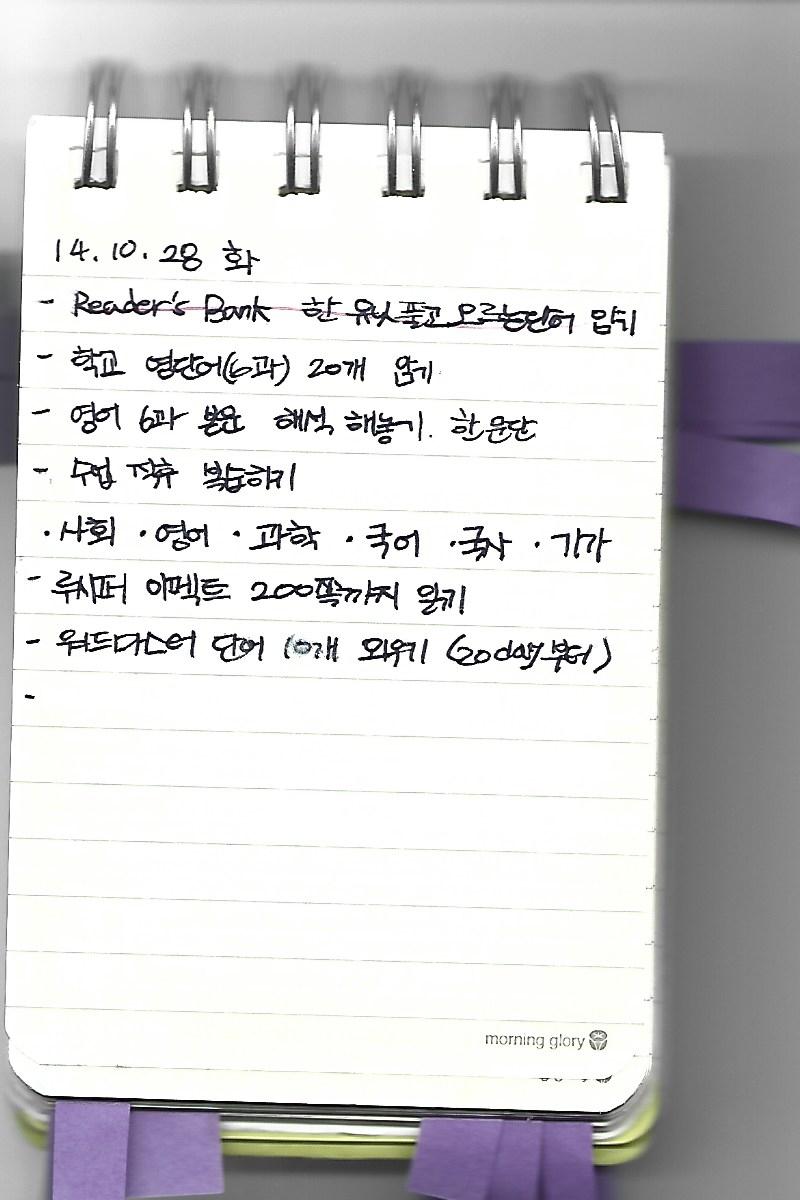 14.10.28 화
- Reader's Bank 한 유닛 풀고 모르는 단어 암기
- 학교 영단어(6과) 20개 암기
- 영어 6과 본문 해석 해놓기. 한 문단
- 수업 직후 복습하기
·사회 ·영어 ·과학 ·국어 ·국사 ·기가
- 루시퍼 이펙트 200쪽까지 읽기
- 워드마스터 단어 10개 외우기 (20day부터)
-
morning glory